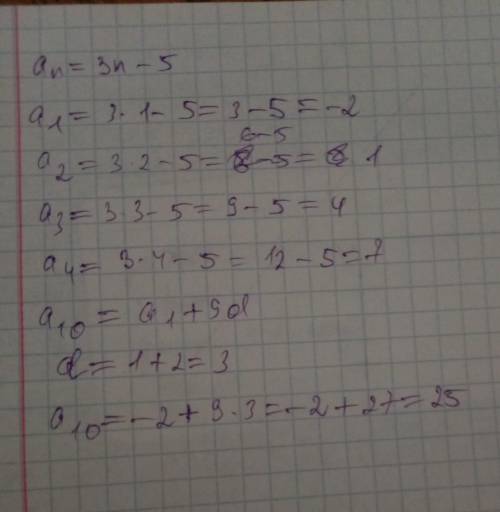 aₙ = 3n - 5
a₁ = 3·1 - 5 = 3 - 5 = -2
6-5
a₂ = 3·2 - 5 = - 5 = 1
a₃ = 3·3 - 5 = 9 - 5 = 4
a₄ = 3·4 - 5 = 12 - 5 = 7
a₁₀ = a₁ + 9d
d = 1 + 2 = 3
a₁₀ = -2 + 9·3 = -2 + 27 = 25